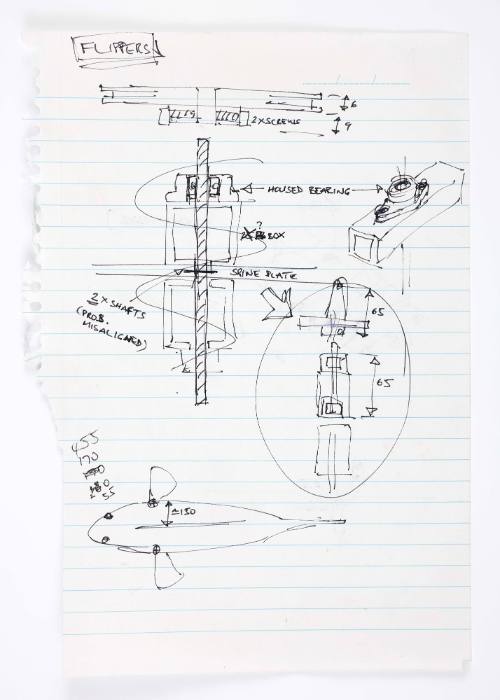 FLIPPERS
6
2 X SCREWS
9
HOUSED BEARING
?
BOX
SPINE PLATE
2 X SHAFTS
(PROB.
MISALIGNED)
65
65
455
170
55
±150